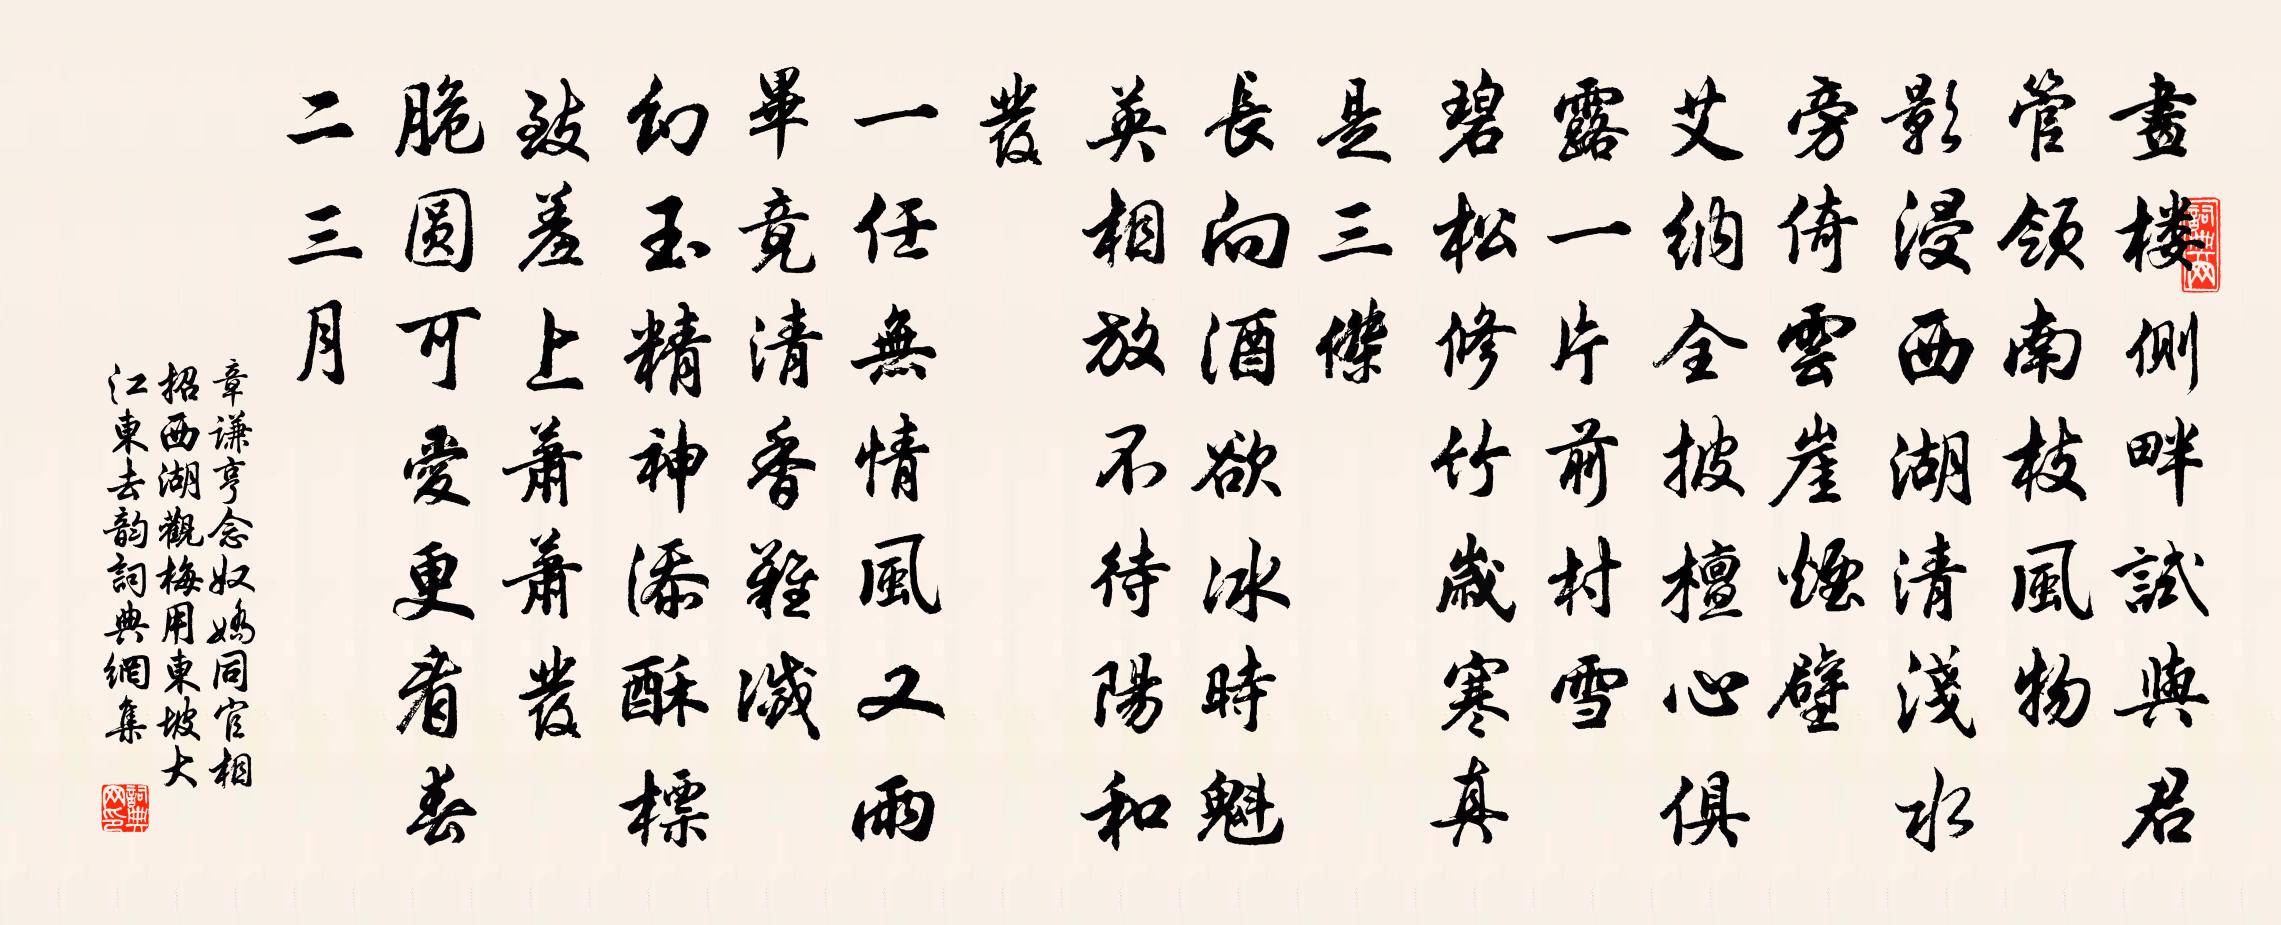 詞典网
畫楼側畔試與君
管領南枝風物
影浸西湖清淺水
旁倚雲崖煙壁
艾納全披檀心俱
露一片前村雪
碧松修竹歲寒真
是三傑
長向酒欲冰時魁
英相放不待陽和
發
一任無情風又雨
畢竟清香難滅
幻玉精神添酥標
致羞上蕭蕭發
脆圆可愛更看春
二三月
章谦亨念奴嬌同官相
招西湖觀梅用東坡大
江東去韵詞典網集
詞典网印